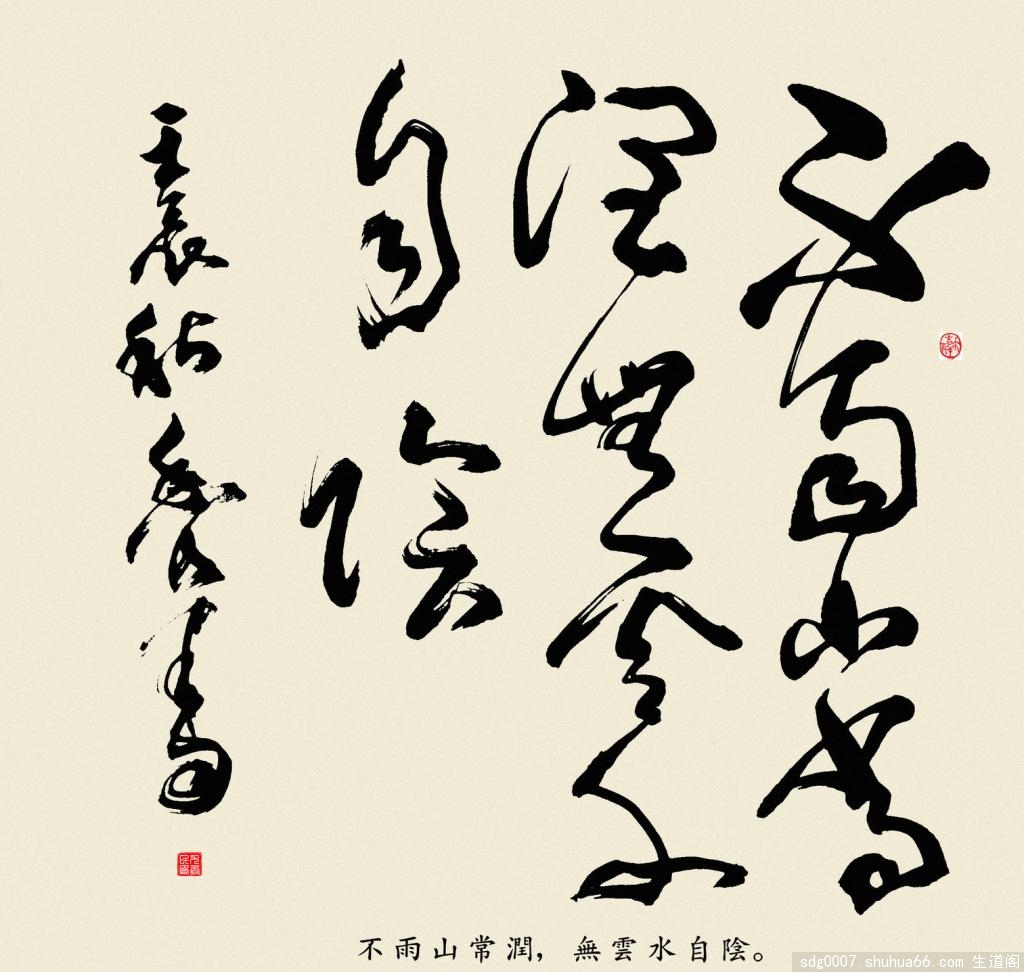 不雨山常
潤無雲水
自陰
壬辰秋
不雨山常潤，無雲水自陰。
sdg0007.shuhua66.com 生道阁